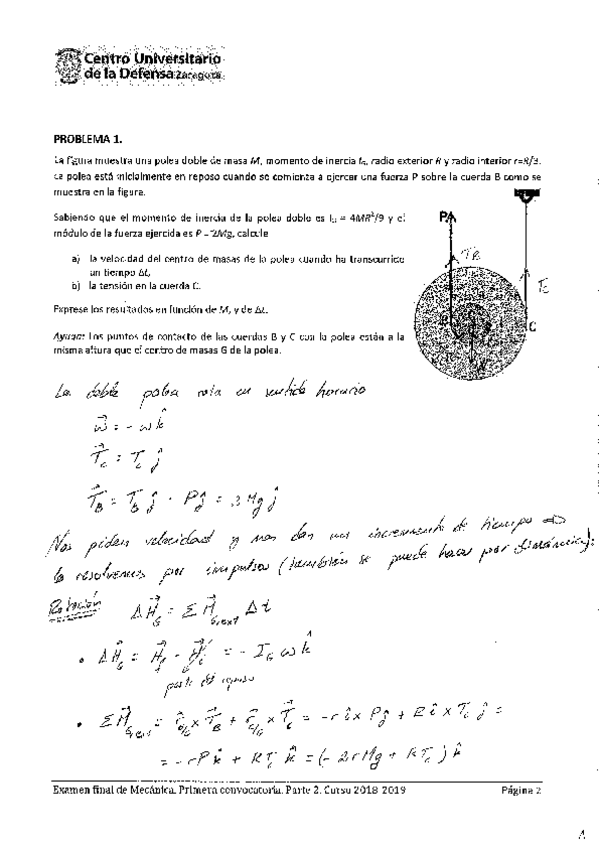 Centro Universitario
de la Defensa Zaragoza
PROBLEMA 1.
La figura muestra una polea doble de masa M, momento de inercia I_G, radio exterior R y radio interior r=R/3.
La polea está inicialmente en reposo cuando se comienza a ejercer una fuerza P sobre la cuerda B como se
muestra en la figura.
Sabiendo que el momento de inercia de la polea doble es I_G = 4MR²/9 y el
módulo de la fuerza ejercida es P = 2Mg, calcule
a) la velocidad del centro de masas de la polea cuando ha transcurrido
un tiempo Δt,
b) la tensión en la cuerda C.
Exprese los resultados en función de M, y de Δt.
Ayuda: Los puntos de contacto de las cuerdas B y C con la polea están a la
misma altura que el centro de masas G de la polea.
P
T_B
T_C
C
La doble polea rota en sentido horario
ω⃗ = - ω k̂
T⃗_C = T_C ĵ
T⃗_B = T_B ĵ = P ĵ = 2Mg ĵ
Nos piden velocidad y nos dan un incremento de tiempo ⇒
lo resolvemos por impulsos (también se puede hacer por dinámica):
Rotación ΔH⃗_G = ΣM⃗_G,ext Δt
• ΔH⃗_G = H⃗_f - H⃗_i = - I_G ω k̂
parte del reposo
• ΣM⃗_G,ext = r⃗_B/G × T⃗_B + r⃗_C/G × T⃗_C = - r î × P ĵ + R î × T_C ĵ =
= - rP k̂ + RT_C k̂ = (- 2rMg + RT_C) k̂
Examen final de Mecánica. Primera convocatoria. Parte 2. Curso 2018-2019 Página 2